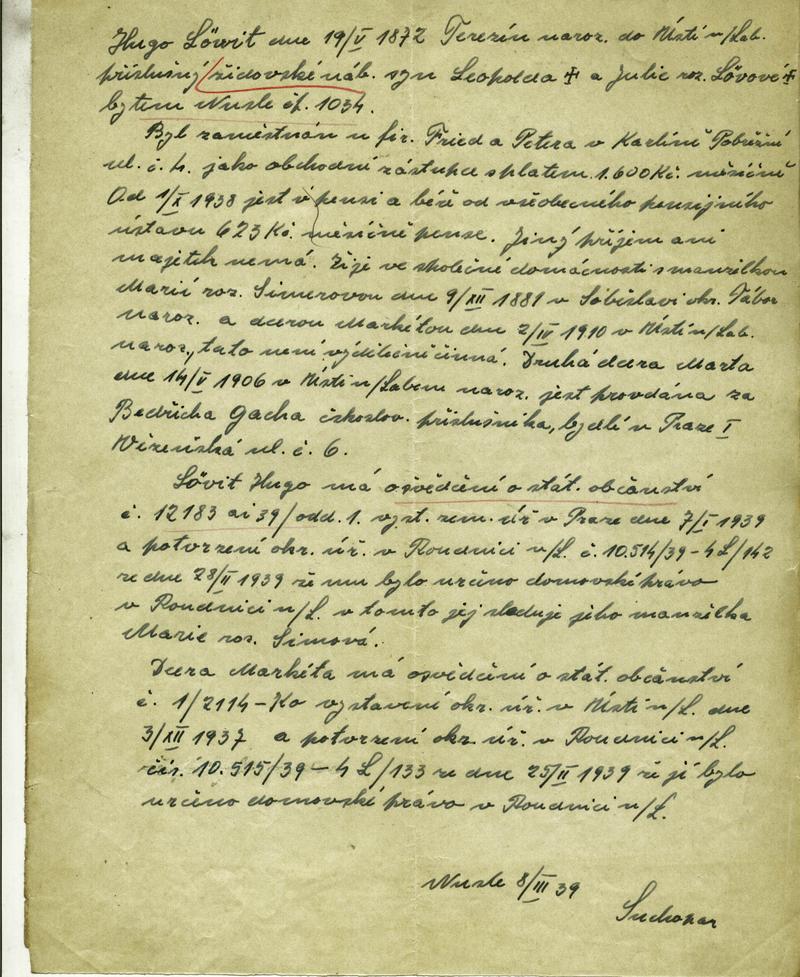 Hugo Löwit dne 19/V 1872 Terezín naroz. do Ústí n/Lab.
příslušný židovské náb. syn Leopolda ‡ a Julie roz. Lövové ‡
bytem Nusle čp. 1034.
Byl zaměstnán u fir. Fried a Petera v Karlíně Pobřežní
ul. č. 4. jako obchodní zástupce s platem 1.600 Kč. měsíčně
Od 1/X 1938 jest v pensi a béře od všeobecného pensijního
ústavu 623 Kč. měsíčně pense. Jiný příjem ani
majetek nemá. Žije ve společné domácnosti s manželkou
Marií roz. Simerovou dne 9/XII 1881 v Soběslavi okr. Tábor
naroz. a dcerou Markétou dne 2/IV 1910 v Ústí n/Lab.
naroz., tato není výdělečně činná. Druhá dcera Marta
dne 14/V 1906 v Ústí n/Labem naroz. jest provdána za
Bedřicha Gacha českoslov. příslušníka, bydlí v Praze I
Vězeňská ul. č. 6.
Lövit Hugo má osvědčení o stát. občanství
č. 12183 ai 39/odd. 1. vyst. zem. úř v Praze dne 7/I 1939
a potvrzení okr. úř. v Roudnici n/L. č. 10.514/39 – 4 L/142
ze dne 28/II 1939 že mu bylo určeno domovské právo
v Roudnici n/L. v tomto jej sleduje jeho manželka
Marie roz. Simová.
Dcera Markéta má osvědčení o stát. občanství
č. 1/2114 – Ko vystavení okr. úř. v Ústí n/L. dne
3/XII 1937 a potvrzení okr. úř. v Roudnici n/L.
čís. 10.515/39 – 4 L/133 ze dne 25/II 1939 že jí bylo
určeno domovské právo v Roudnici n/L.
Nusle 8/III 39
Suchopar